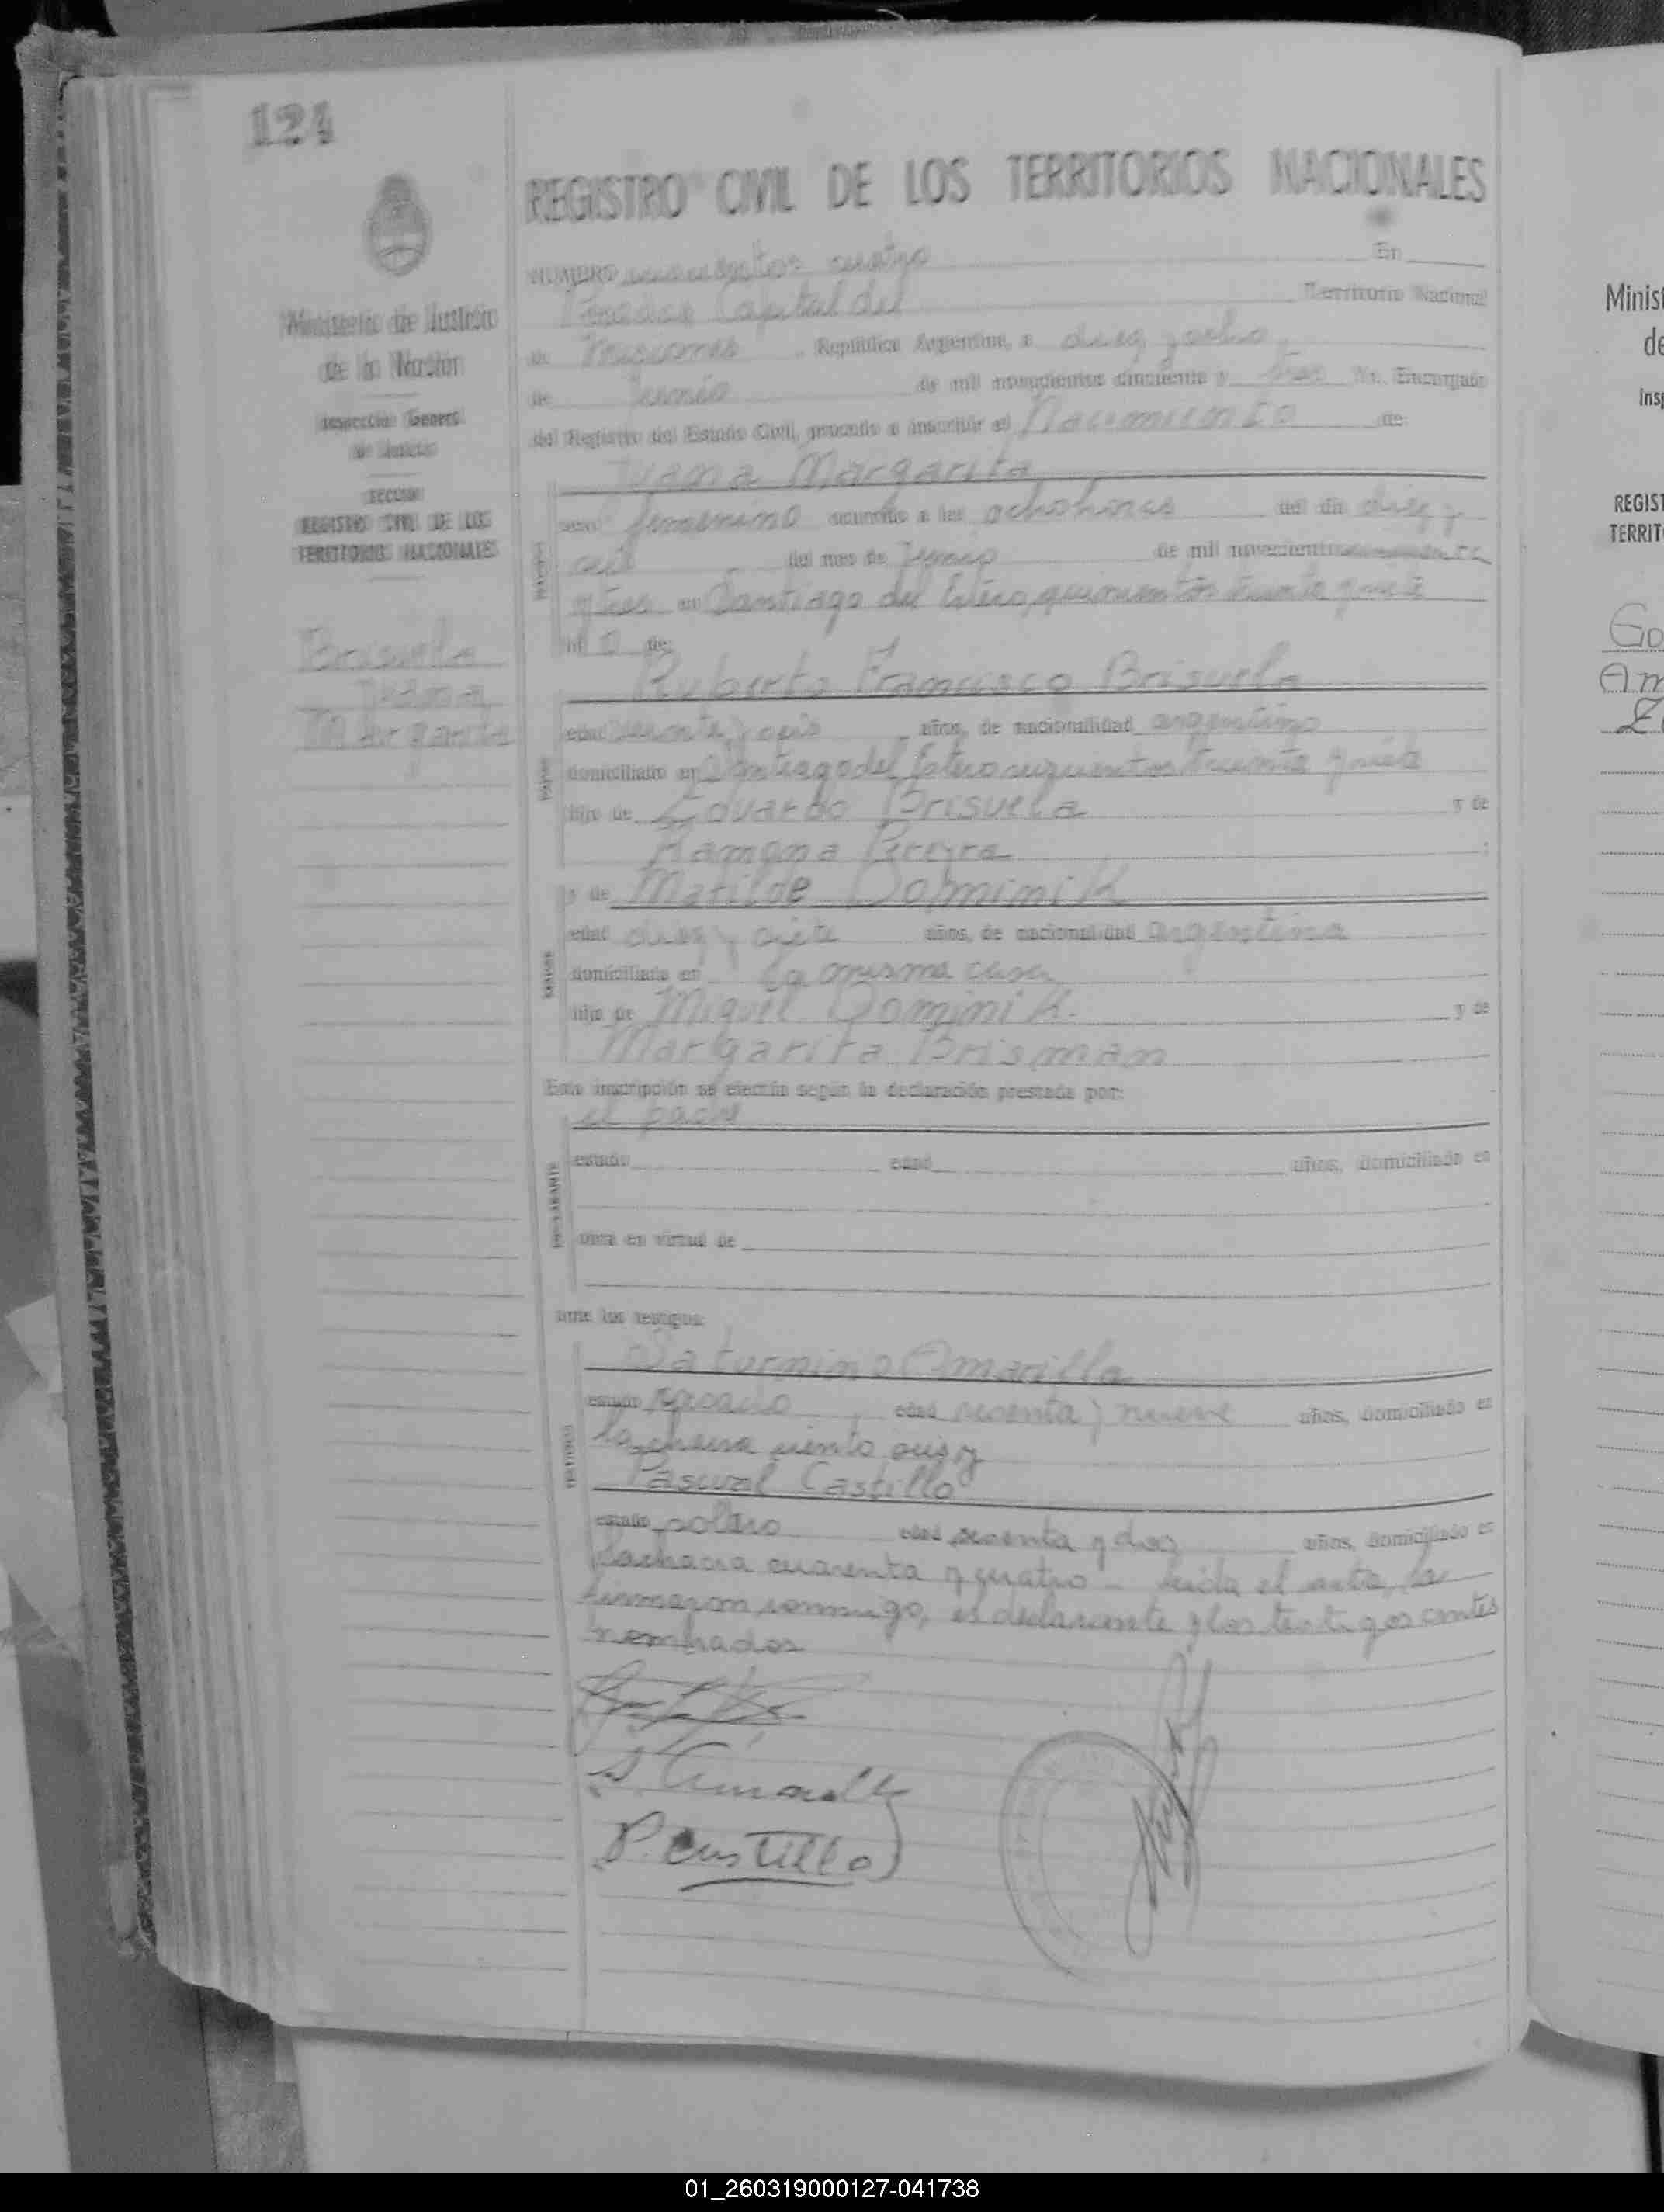 124
REGISTRO CIVIL DE LOS TERRITORIOS NACIONALES
Ministerio de Justicia
de la Nación
Inspección General
de Justicia
SECCION
REGISTRO CIVIL DE LOS
TERRITORIOS NACIONALES
Brisuela
Juana
Margarita
NUMERO cuatro En
Posadas Capital del Territorio Nacional
de Misiones República Argentina, a diez y ocho
de Junio de mil novecientos cincuenta y tres Yo, Encargado
del Registro del Estado Civil, procedo a inscribir el Nacimiento de:
Juana Margarita
sexo femenino ocurrido a las ocho horas del día diez y
del mes de Junio de mil novecientos cincuenta
y tres en Santiago del Estero, treinta y
hij a de:
Ruberto Francisco Brisuela
edad años, de nacionalidad argentino
domiciliado en Santiago del Estero treinta y
hijo de Eduardo Brisuela y de
Ramona Pereyra
y de Matilde Dominik
edad diez y siete años, de nacionalidad argentina
domiciliada en la misma casa
hija de Miguel Dominik. y de
Margarita Brisman
Esta inscripción se efectúa según la declaración prestada por:
el padre
estado edad años, domiciliado en
obra en virtud de
ante los testigos:
Saturnino Amarilla
estado casado edad y nueve años, domiciliado en
la chacra ciento seis y
Pascual Castillo
estado soltero edad y dos años, domiciliado en
la chacra cuarenta y cuatro - Leida el acta, la
firmaron conmigo, el declarante y los testigos antes
nombrados
S. Amarilla
P. Castillo
Minist
de
Insp
REGIST
TERRIT
Go
Am
01_260319000127-041738